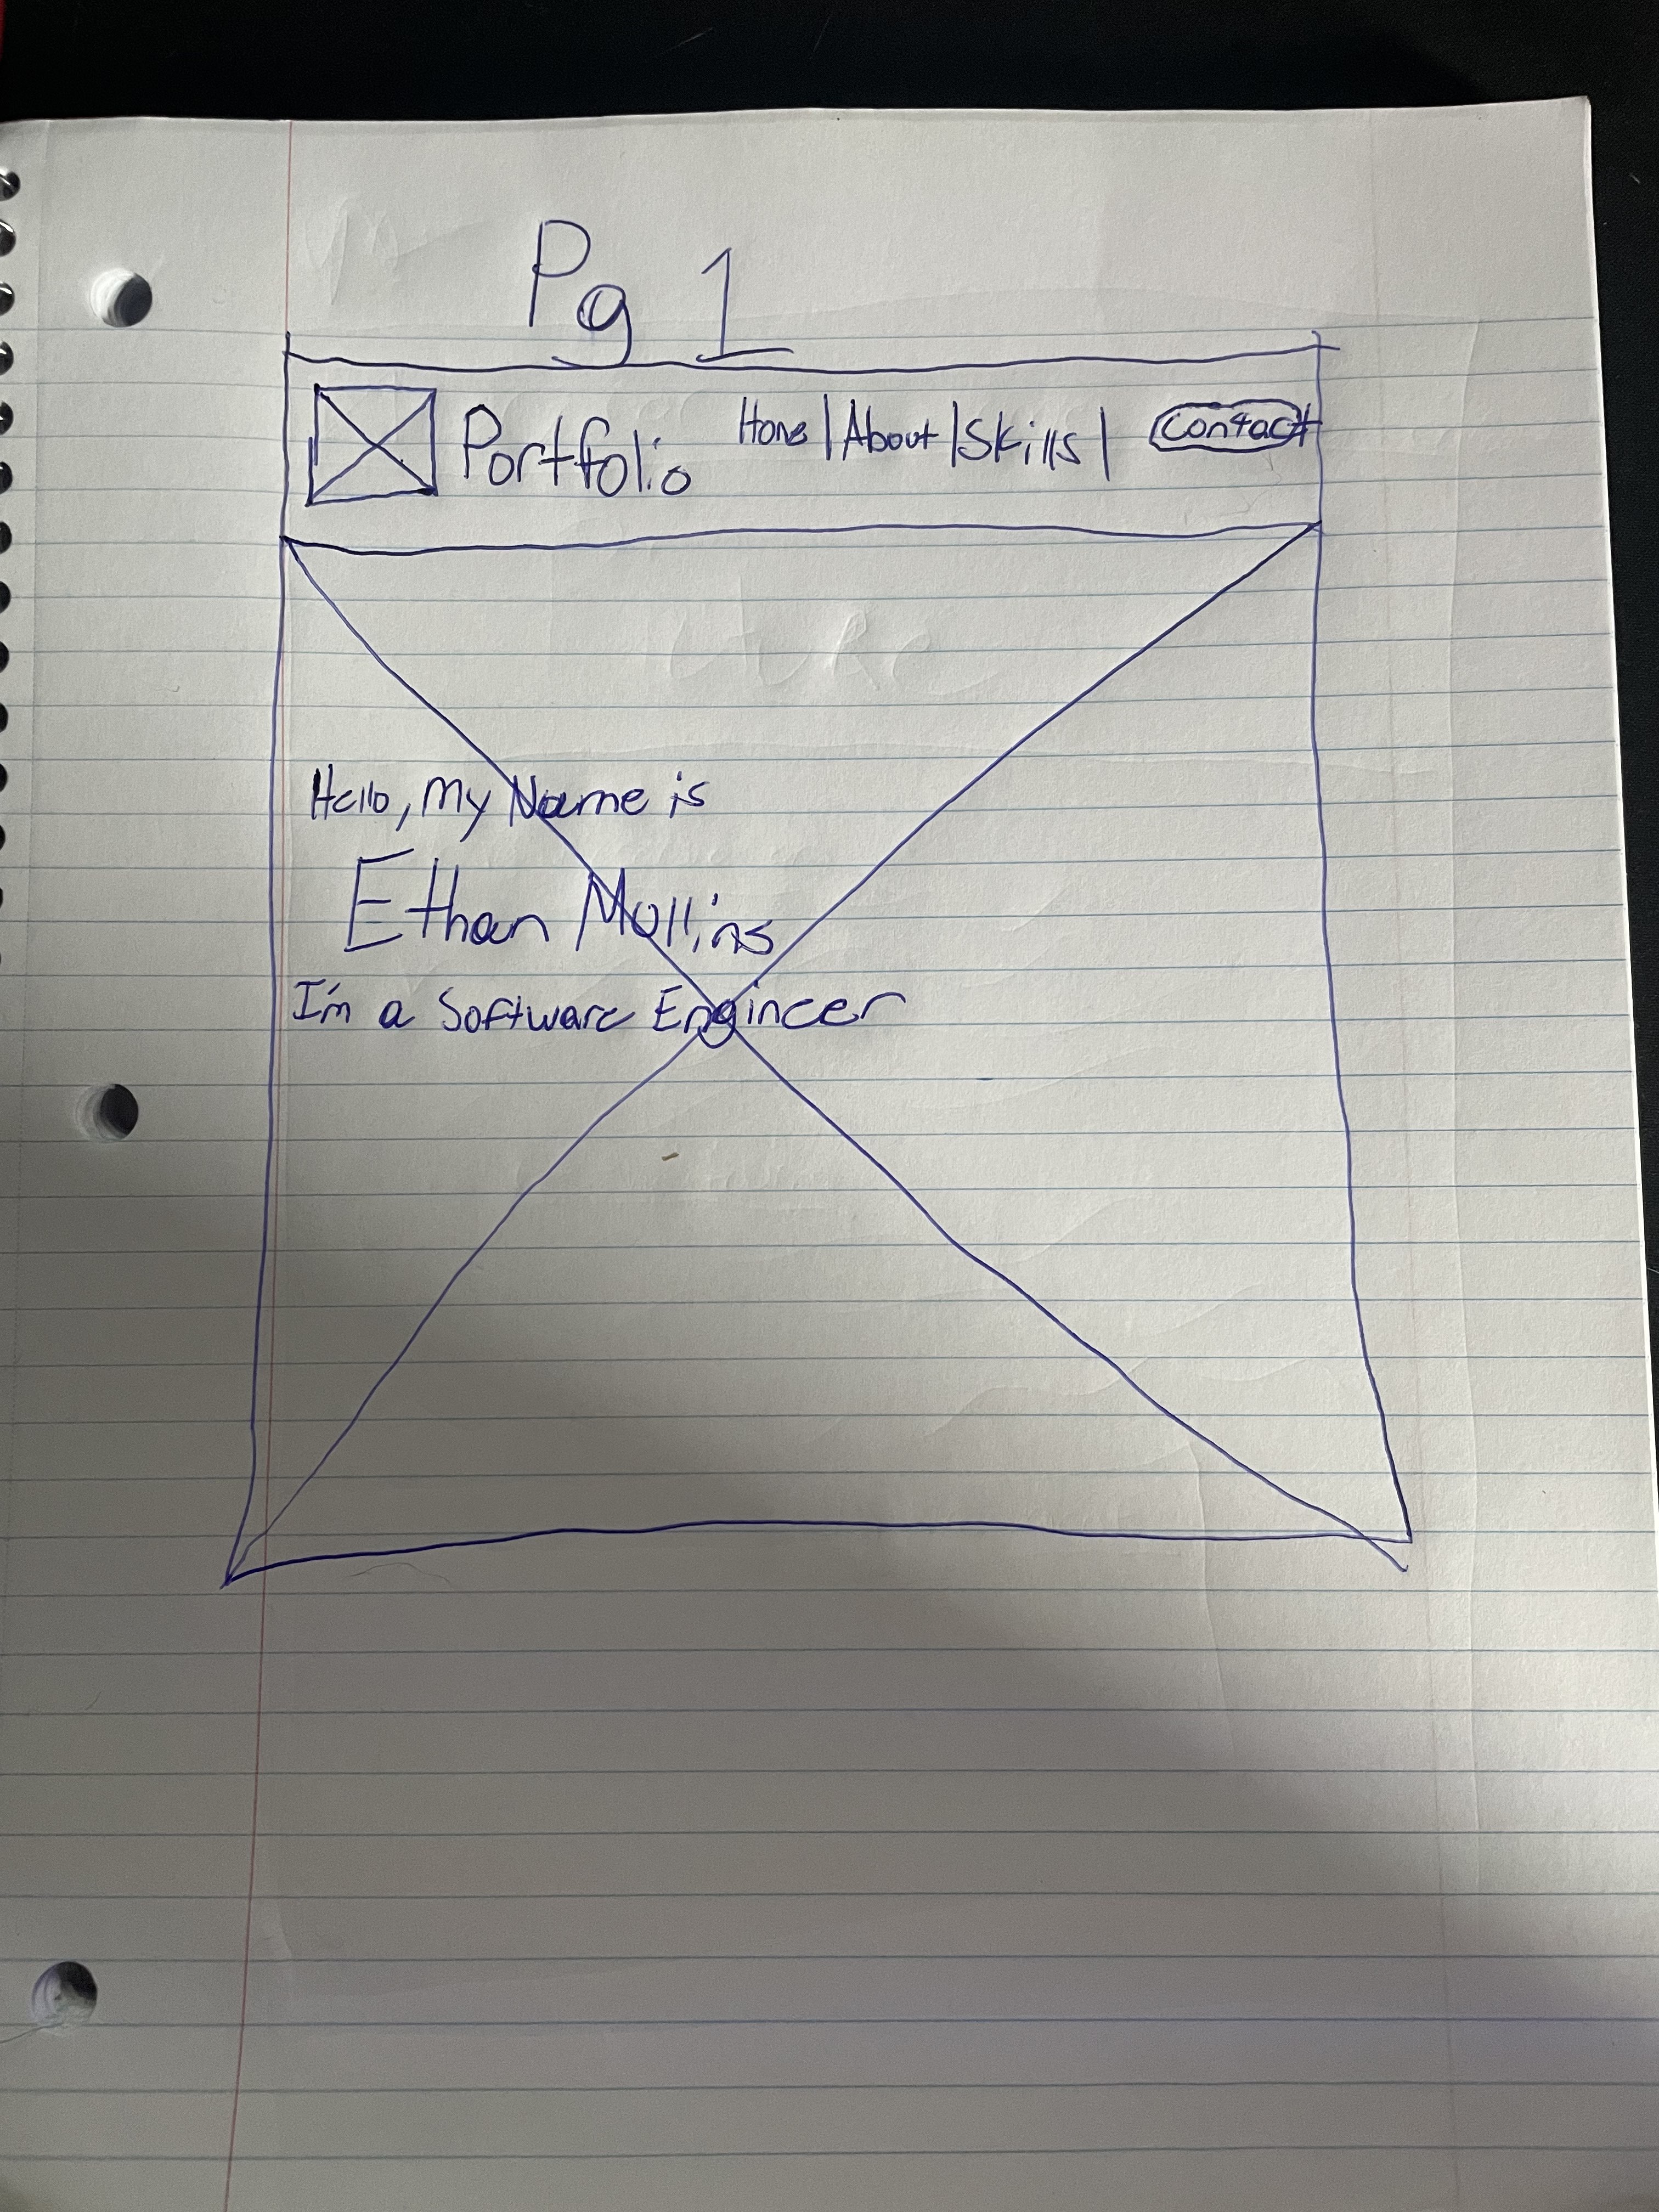 Pg 1
Portfolio Home | About | Skills | Contact
Hello, My Name is
Ethan Mullins
I'm a Software Engineer